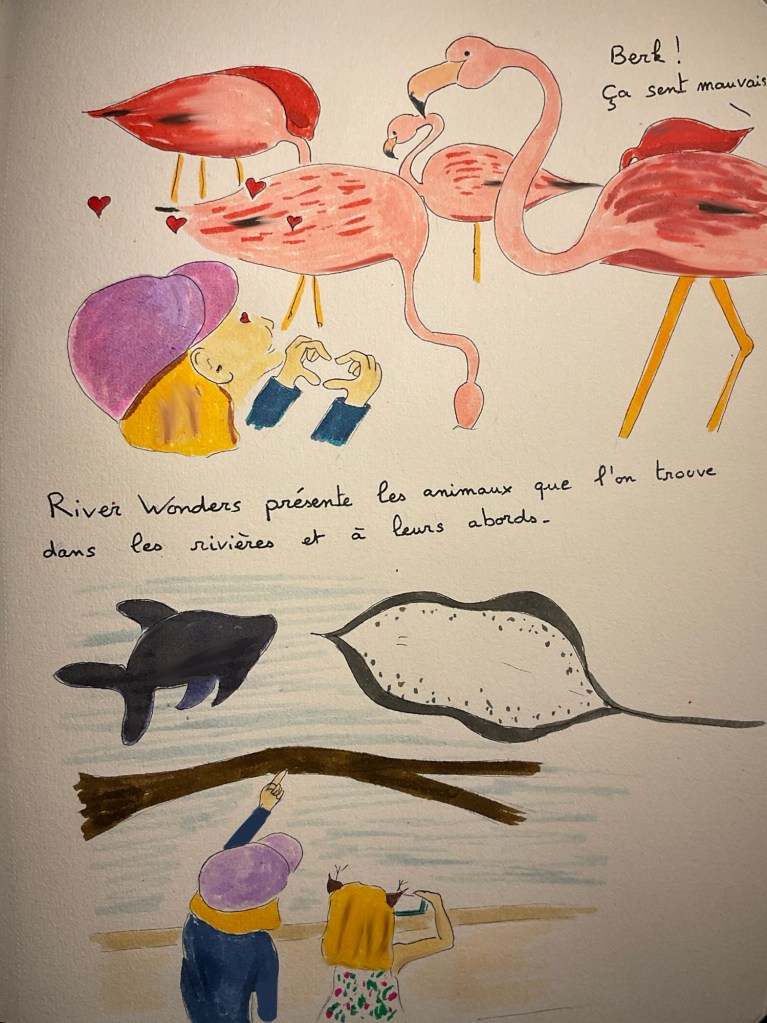 Berk !
Ça sent mauvais
River Wonders présente les animaux que l'on trouve
dans les rivières et à leurs abords.